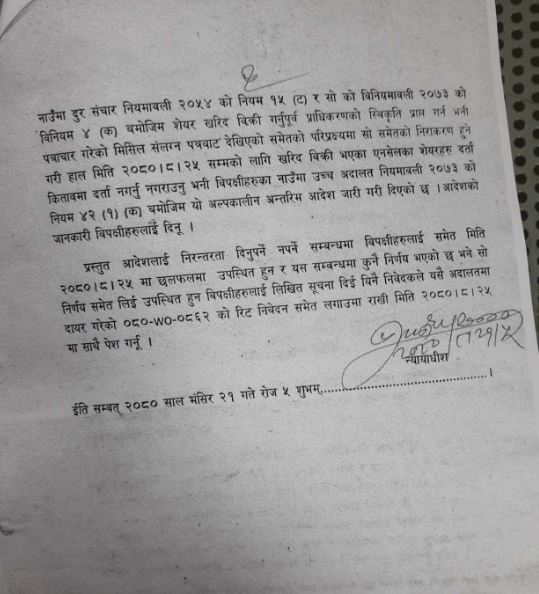 नाउँमा दुर संचार नियमावली २०५४ को नियम १५ (ट) र सो को विनियमावली २०७३ को
विनियम ४ (क) बमोजिम शेयर खरिद विक्री गर्नुपूर्व प्राधिकरणको स्विकृति प्राप्त गर्न भनी
पत्राचार गरेको मिसिल संलग्न पत्रवाट देखिएको समेतको परिप्रेक्ष्यमा सो समेतको निराकरण हुने
गरी हाल मिति २०८०।८।२५ सम्मको लागि खरिद विक्री भएका एनसेलका शेयरहरु दर्ता
कितावमा दर्ता नगर्नु नगराउनु भनी विपक्षीहरुका नाउँमा उच्च अदालत नियमावली २०७३ को
नियम ४२ (१) (क) बमोजिम यो अल्पकालीन अन्तरिम आदेश जारी गरी दिएको छ । आदेशको
जानकारी विपक्षीहरुलाई दिनू ।
प्रस्तुत आदेशलाई निरन्तरता दिनुपर्ने नपर्ने सम्बन्धमा विपक्षीहरुलाई समेत मिति
२०८०।८।२५ मा छलफलमा उपस्थित हुन र यस सम्बन्धमा कुनै निर्णय भएको छ भने सो
निर्णय समेत लिई उपस्थित हुन विपक्षीहरुलाई लिखित सूचना दिई यिनै निवेदकले यसै अदालतमा
दायर गरेको ०८०-WO-०८६२ को रिट निवेदन समेत लगाउमा राखी मिति २०८०।८।२५
मा साथै पेश गर्नू ।
न्यायाधीश
ईति सम्बत् २०८० साल मंसिर २१ गते रोज ५ शुभम्..................................................।